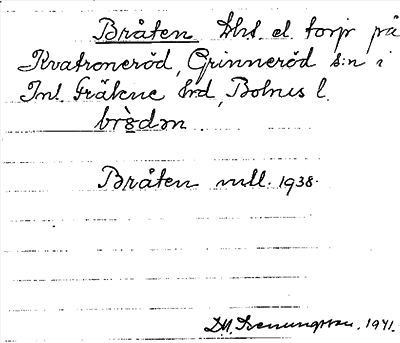 Bråten Lht. el. torp på
Kvatroneröd, Grinneröd s:n i
Inl. Fräkne hd, Bohus l.
brò̀dən.
Bråten mtl. 1938.
1941.